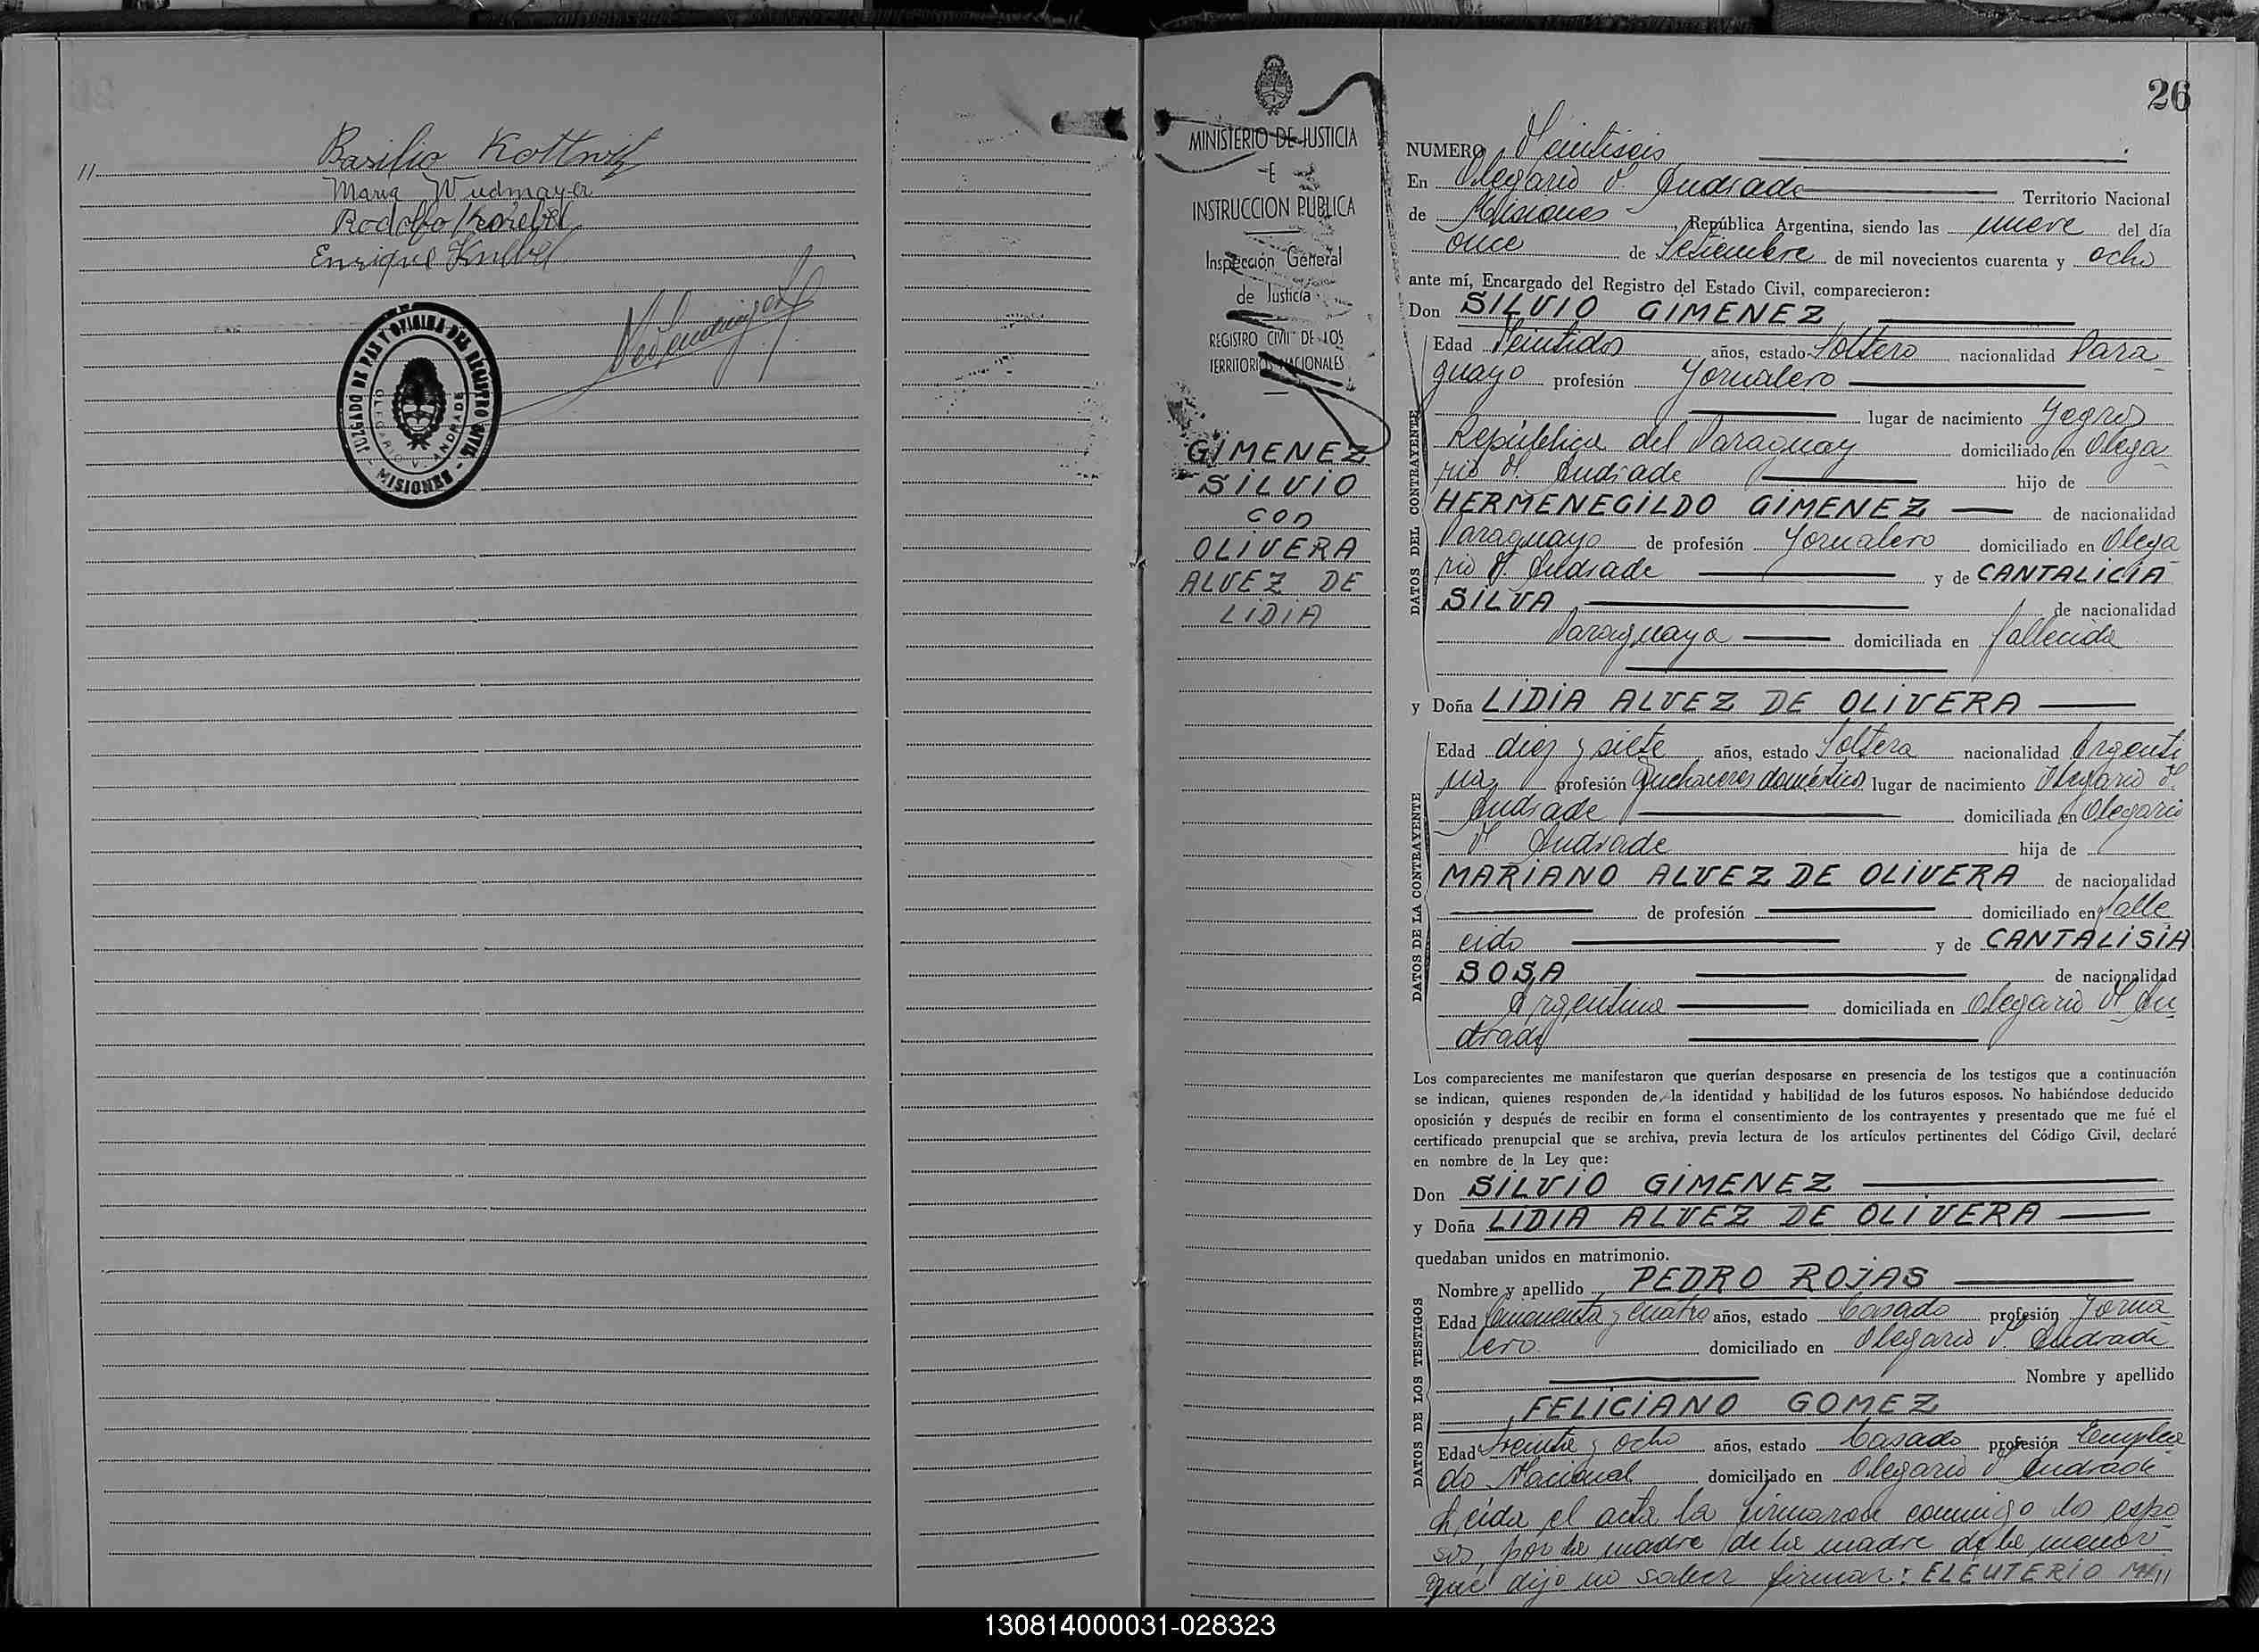 Basilio Kottwitz
Maria Widmayer
Rodolfo Knebel
Enrique Knebel
JUZGADO DE PAZ Y OFICINA DEL REGISTRO CIVIL
OLEGARIO V. ANDRADE
- MISIONES -
MINISTERIO DE JUSTICIA
E
INSTRUCCION PUBLICA
Inspección General
de Justicia
REGISTRO CIVIL DE LOS
TERRITORIOS NACIONALES
GIMENEZ
SILVIO
CON
OLIVERA
ALVEZ DE
LIDIA
26
NUMERO Veintiseis
En Olegario V. Andrade Territorio Nacional
de Misiones, República Argentina, siendo las nueve del día
once de Setiembre de mil novecientos cuarenta y ocho
ante mí, Encargado del Registro del Estado Civil, comparecieron:
Don SILVIO GIMENEZ
DATOS DEL CONTRAYENTE
Edad Veintidos años, estado Soltero nacionalidad Para
guayo profesión Jornalero
lugar de nacimiento Yegros
República del Paraguay domiciliado en Olega
rio V. Andrade hijo de
HERMENEGILDO GIMENEZ de nacionalidad
Paraguayo de profesión Jornalero domiciliado en Olega
rio V. Andrade y de CANTALICIA
SILVA de nacionalidad
Paraguaya domiciliada en fallecida
y Doña LIDIA ALVEZ DE OLIVERA
DATOS DE LA CONTRAYENTE
Edad diez y siete años, estado Soltera nacionalidad Argenti
na profesión Quehaceres domésticos lugar de nacimiento Olegario V.
Andrade domiciliada en Olegario
V. Andrade hija de
MARIANO ALVEZ DE OLIVERA de nacionalidad
de profesión domiciliado en falle
cido y de CANTALISIA
SOSA de nacionalidad
Argentina domiciliada en Olegario V. An
drade
Los comparecientes me manifestaron que querían desposarse en presencia de los testigos que a continuación
se indican, quienes responden de la identidad y habilidad de los futuros esposos. No habiéndose deducido
oposición y después de recibir en forma el consentimiento de los contrayentes y presentado que me fué el
certificado prenupcial que se archiva, previa lectura de los artículos pertinentes del Código Civil, declaré
en nombre de la Ley que:
Don SILVIO GIMENEZ
y Doña LIDIA ALVEZ DE OLIVERA
quedaban unidos en matrimonio.
DATOS DE LOS TESTIGOS
Nombre y apellido PEDRO ROJAS
Edad Cincuenta y cuatro años, estado Casado profesión Jorna
lero domiciliado en Olegario V. Andrade
Nombre y apellido
FELICIANO GOMEZ
Edad Treinta y ocho años, estado Casado profesión Emplea
do Nacional domiciliado en Olegario V. Andrade
Leida el acta la firmaron conmigo los espo
sos, por la madre de la madre de la menor
que dijo no saber firmar: ELEUTERIO
130814000031-028323